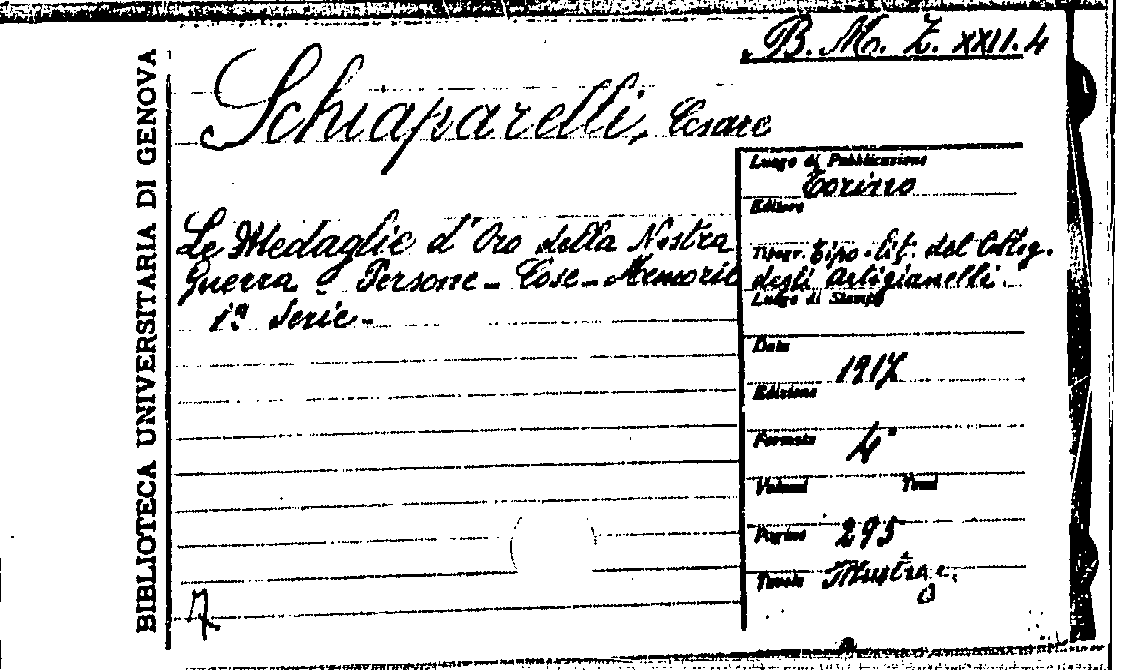 B. M. Z. XXII. 4
BIBLIOTECA UNIVERSITARIA DI GENOVA
Schiaparelli, Cesare
Le Medaglie d'Oro della Nostra
Guerra - Persone - Cose - Memorie
1ª Serie -
Luogo di Pubblicazione
Torino
Editore
Tipogr. Tipo-lit. del Colleg.
degli Artigianelli.
Luogo di Stampa
Data
1917
Edizione
Formato 4°
Volumi Tomi
Pagine 295
Tavole Illustraz.